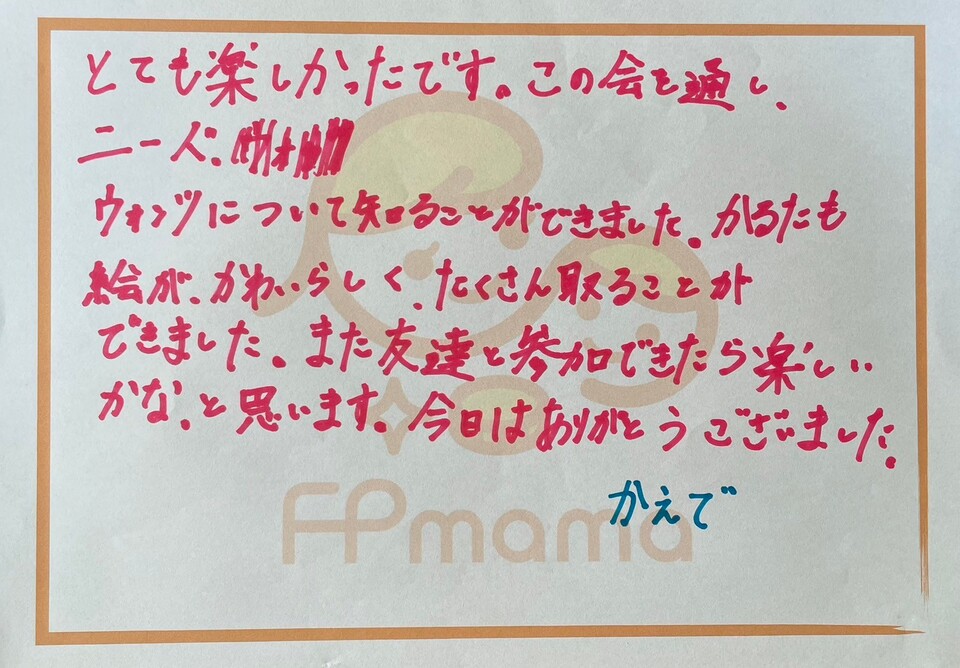 とても楽しかったです。この会を通し、
ニーズ、
ウォンツについて知ることができました。かるたも
絵が、かわいらしく、たくさん取ることが
できました。また友達と参加できたら楽しい
かな、と思います。今日はありがとうございました。
かえで
FPmama